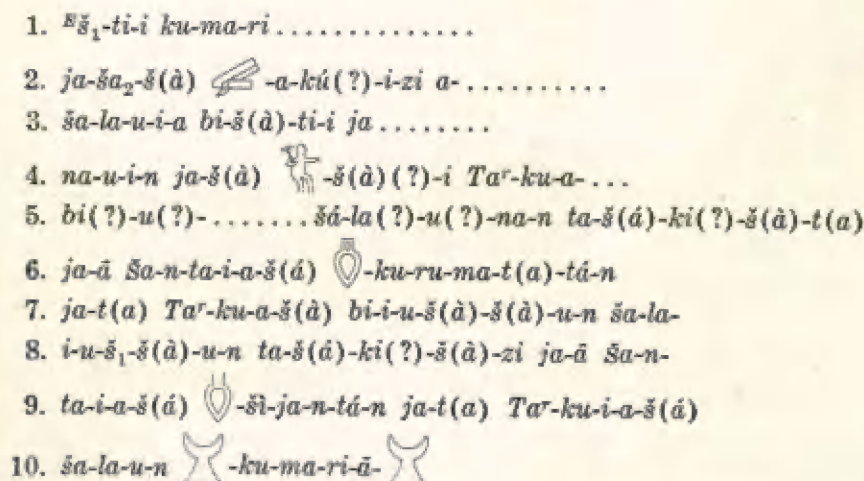 1. ᴱš₁-ti-i ku-ma-ri . . . . . . . . . . . . . .
2. ja-ša₂-š(à) -a-kú(?)-i-zi a- . . . . . . . . . .
3. ša-la-u-i-a bi-š(à)-ti-i ja . . . . . . . .
4. na-u-i-n ja-š(à) -š(à)(?)-i Taʳ-ku-a- . . .
5. bi(?)-u(?)- . . . . . . . . šá-la(?)-u(?)-na-n ta-š(á)-ki(?)-š(à)-t(a)
6. ja-ā Ša-n-ta-i-a-š(á) -ku-ru-ma-t(a)-tá-n
7. ja-t(a) Taʳ-ku-a-š(à) bi-i-u-š(à)-š(à)-u-n ša-la-
8. i-u-š₁-š(à)-u-n ta-š(á)-ki(?)-š(à)-zi ja-ā Ša-n-
9. ta-i-a-š(á) -šì-ja-n-tá-n ja-t(a) Taʳ-ku-i-a-š(á)
10. ša-la-u-n -ku-ma-ri-ā-